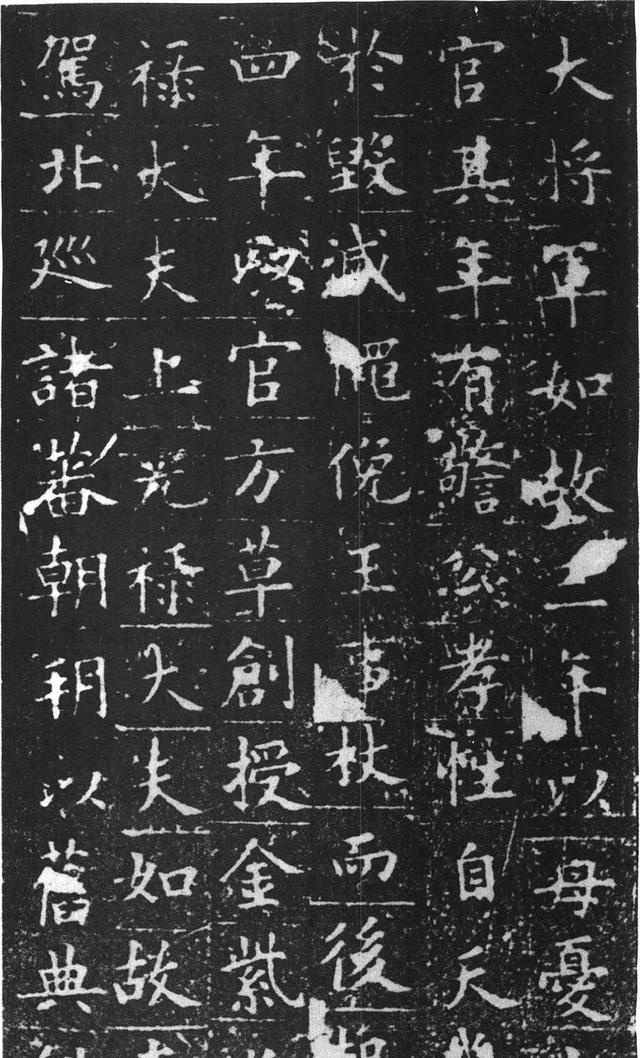 大将軍如故二年以母憂
官其年有警公孝性自天
於毀滅僶俛王事杖而後
四年改官方草創授金紫
禄大夫上光禄大夫如故
駕北巡諸蕃朝朔以舊典